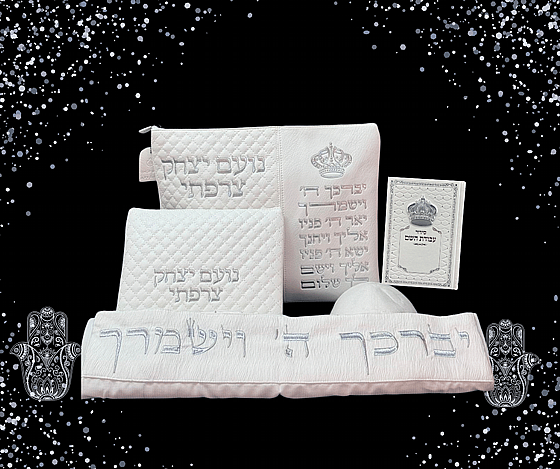 נועם יצחק
צרפתי
יברכך ה׳
וישמרך
יאר ה׳ פניו
אליך ויחנך
ישא ה׳ פניו
אליך וישם
לך שלום
נועם יצחק
צרפתי
סידור
עבודת השם
יברכך ה׳ וישמרך